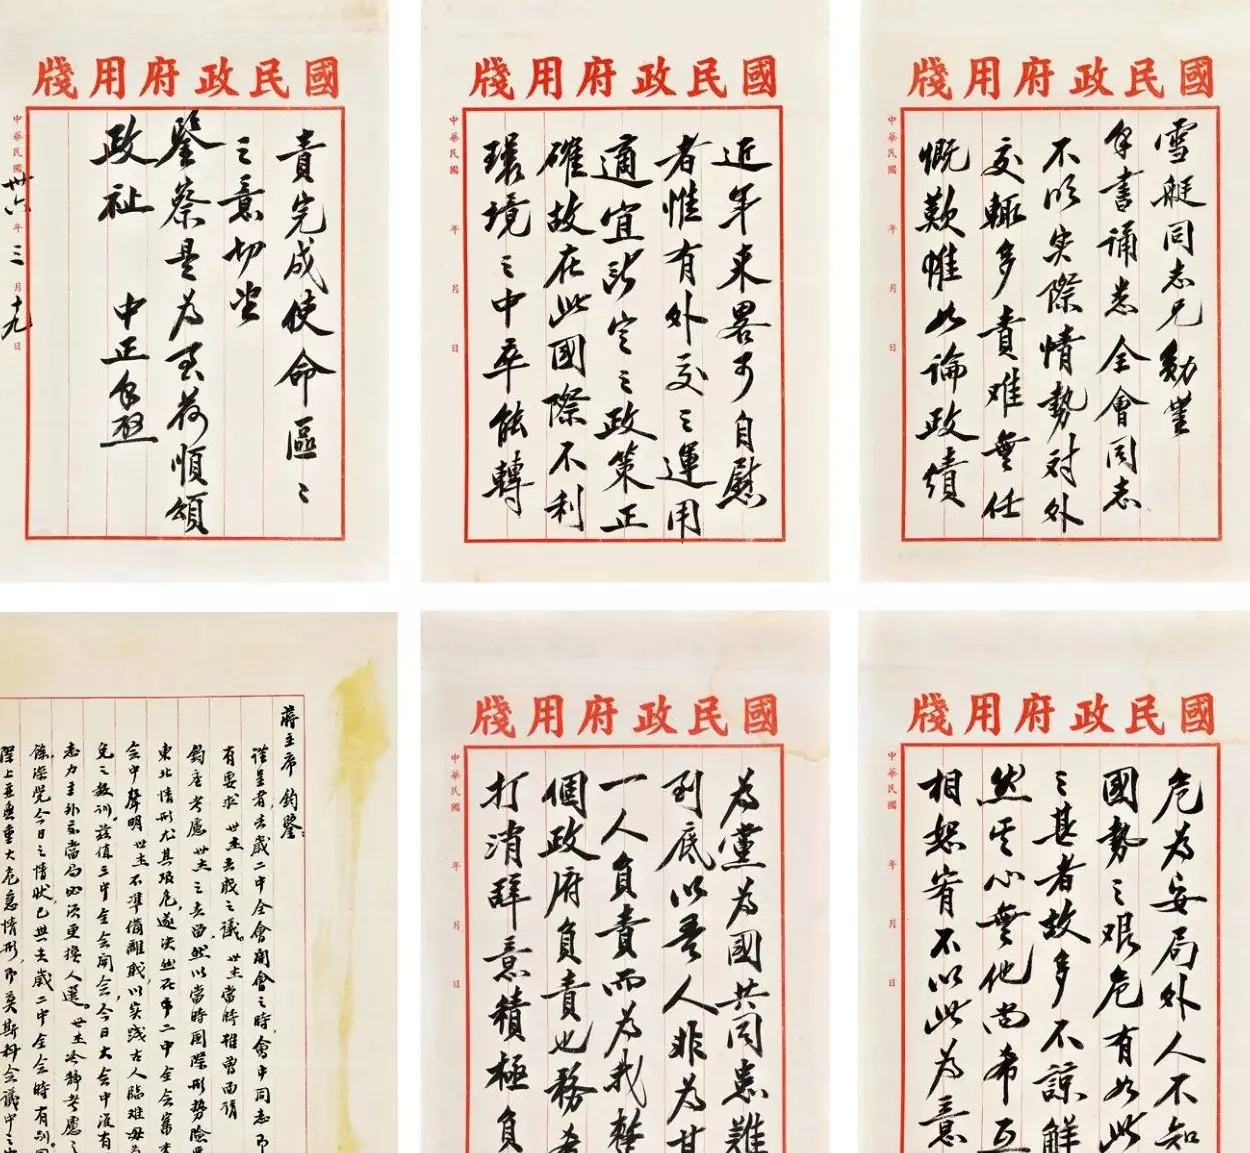 國民政府用牋
雪艇同志兄勛鑒
手書誦悉全會同志
不以實際情勢對外
交輒多責難無任
慨歎惟如論政績
中華民國 年 月 日
國民政府用牋
近年來畧可自慰
者惟有外交之運用
適宜所定之政策正
確故在此國際不利
環境之中卒能轉
中華民國 年 月 日
國民政府用牋
責完成使命區區
之意切望
鑒察是為至荷順頌
政祉 中正手啟
中華民國卅六年三月十九日
國民政府用牋
危為安局外人不知
國勢之艰危有如此
之甚者故多不諒解
然其心無他尚希互
相恕宥不以此為意
中華民國 年 月 日
國民政府用牋
為黨為國共同患難
到底以吾人非為甘
一人負責而為我整
個政府負責也務希
打消辭意積極負
中華民國 年 月 日
蔣主席 鈞鑒：
謹呈者，去歲二中全會開會之時，會中同志即
有要求世杰去職之議。世杰當時雖曾面請
鈞座考慮世杰之去留，然以當時國際形勢險
東北情形尤其險危，遂決然在二中全會當
會中聲明世杰不準備離職，以實踐古人臨難毋苟
免之教訓。茲值三中全會開會，今日大會中復有
志力主外交當局必須更換人選。世杰冷靜考慮之
餘，深覺今日之情狀已與去歲二中全會時有別。
際上並無重大危急情形，即莫斯科會議中之